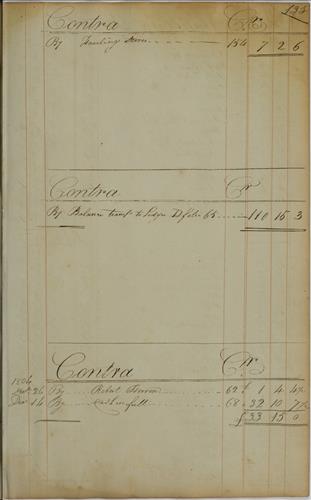 133
Contra Cr
By 154 7 2 6
Contra Cr
By Balance transf to Ledger D folio 65 110 15 3
Contra Cr
1804
26 By Robert 62 £ 1 4 4½
Dec 14 By Cash in full 68 32 10 7½
£ 33 15 0